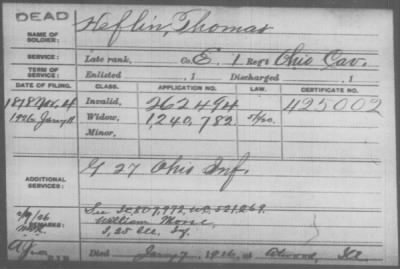 DEAD
NAME OF SOLDIER: Heflin, Thomas
SERVICE: Late rank, Co. E. 1 Reg't Ohio Cav.
TERM OF SERVICE: Enlisted , 1 Discharged , 1
DATE OF FILING. CLASS. APPLICATION NO. LAW. CERTIFICATE NO.
1878 Nov. 4 Invalid, 262494 425002
1926 Jany 11 Widow, 1,240,782.
Minor,
ADDITIONAL SERVICES: G 27 Ohio Inf.
REMARKS: See
William Moore
I, 25 Ill. Inf.
Died Jany 7, 1926, at Ill.